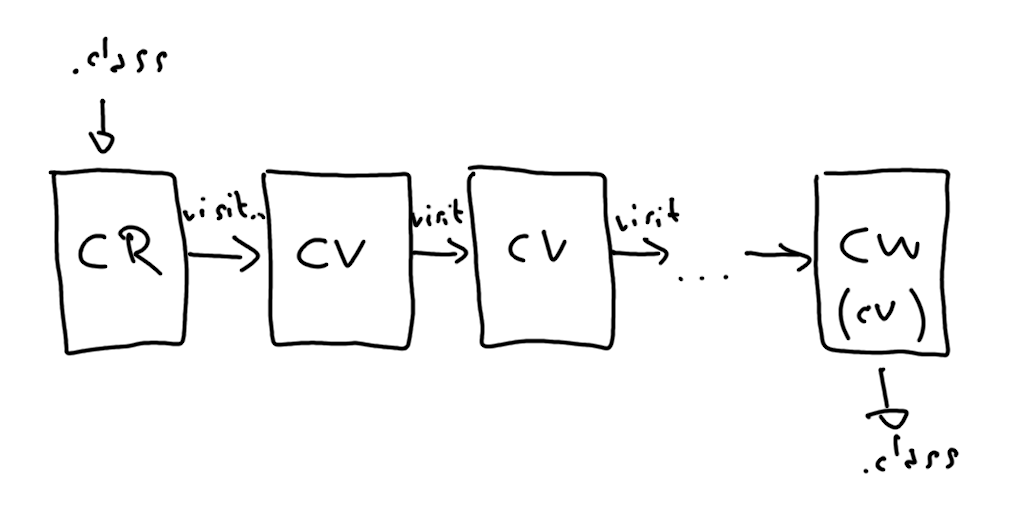 .class
CR
visit..
CV
visit
CV
visit
...
CW
(CV)
.class